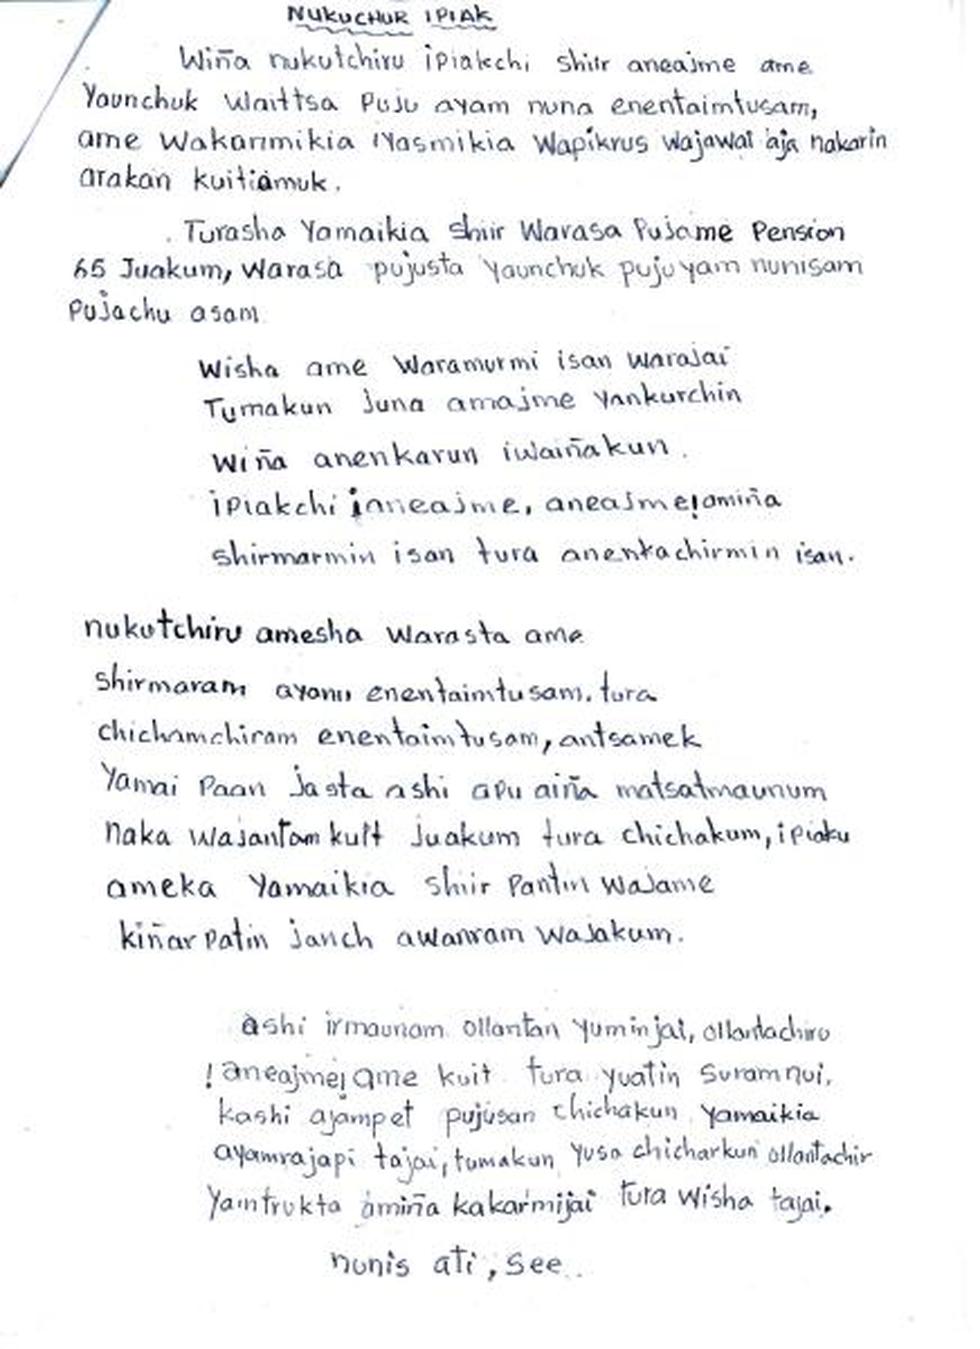 NUKUCHUR IPIAK
Wiña nukutchiru ipiakchi shiir aneajme ame
Yaunchuk waittsa puju ayam nuna enentaimtusam,
ame Wakanmikia iyasmikia wapikrus wajawai aja nakarin
arakan kuitiamuk.
Turasha Yamaikia shiir Warasa Pujame Pension
65 Juakum, Warasa pujusta yaunchuk puju yam nunisam
Pujachu asam
Wisha ame Waramurmi isan warajai
Tumakun juna amajme yankurchin
Wiña anenkarun iwaiñakun.
ipiakchi ¡aneajme, aneajme¡amiña
shirmarmin isan tura anentachirmin isan.
nukutchiru amesha Warasta ame
shirmaram enentaimtusam. tura
chichamchiram enentaimtusam, antsamek
Yamai Paan Jasta ashi apu aiña matsatmaunum
naka wajantam kuit Juakum tura chichakum, ipiaku
ameka Yamaikia shiir Pantin wajame
kiñar patin janch awanram wajakum.
ashi irmaunam ollantan yuminjai, ollantachiru
!aneajme¡ ame kuit tura yuatin suramnui.
kashi ajampet pujusan chichakun yamaikia
ayamrajapi tajai, tumakun yusa chicharkun ollantachir
Yaintrukta amiña kakarmijai tura wisha tajai.
nunis ati, see..